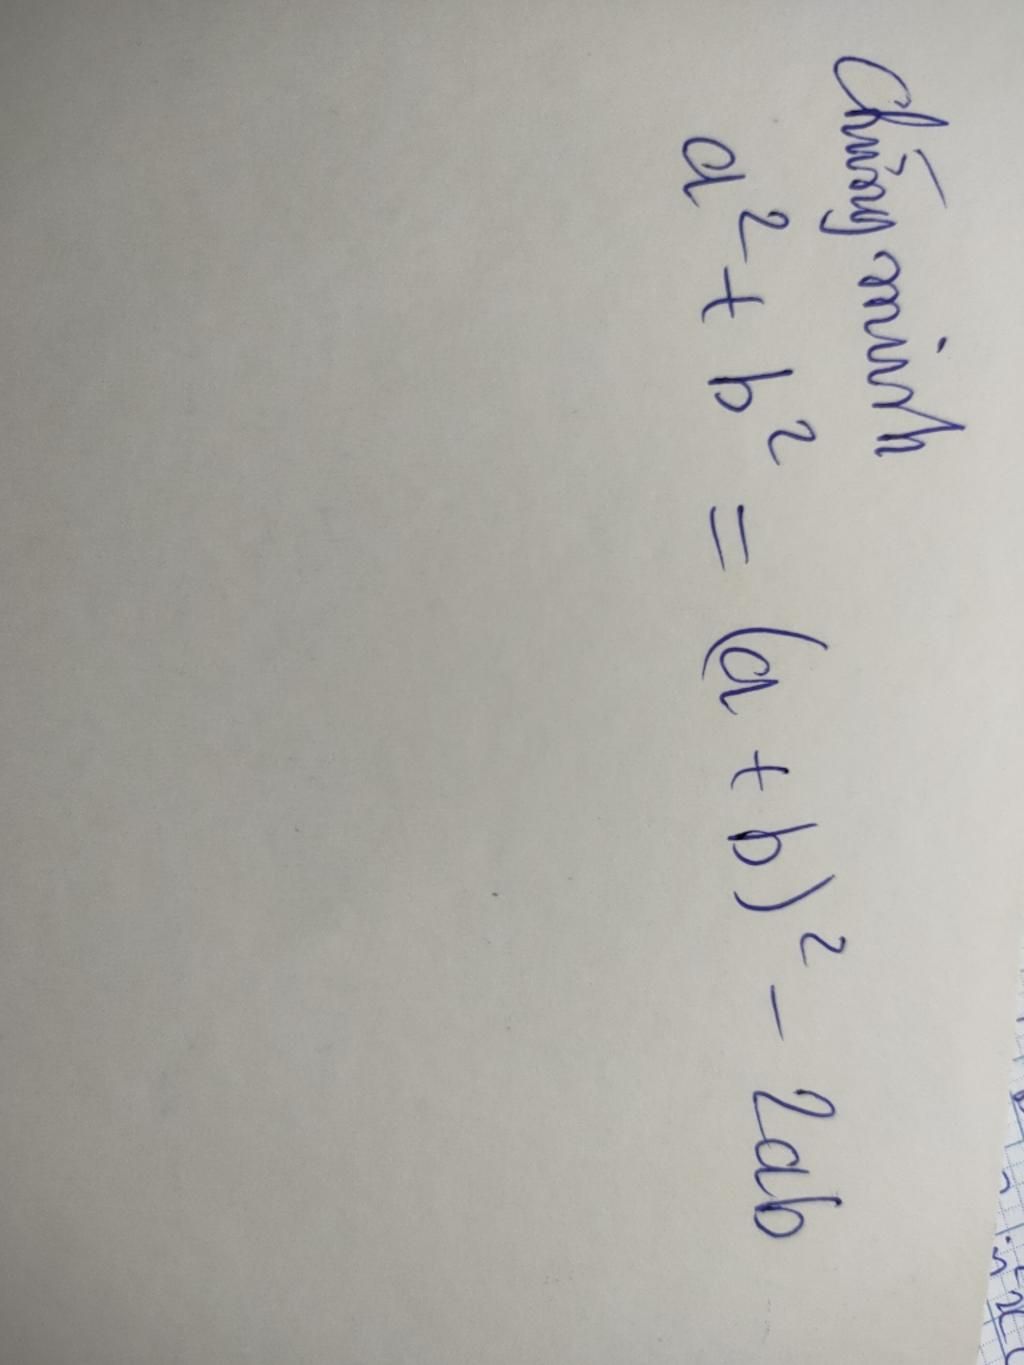 Chứng minh
a² + b² = (a + b)² - 2ab